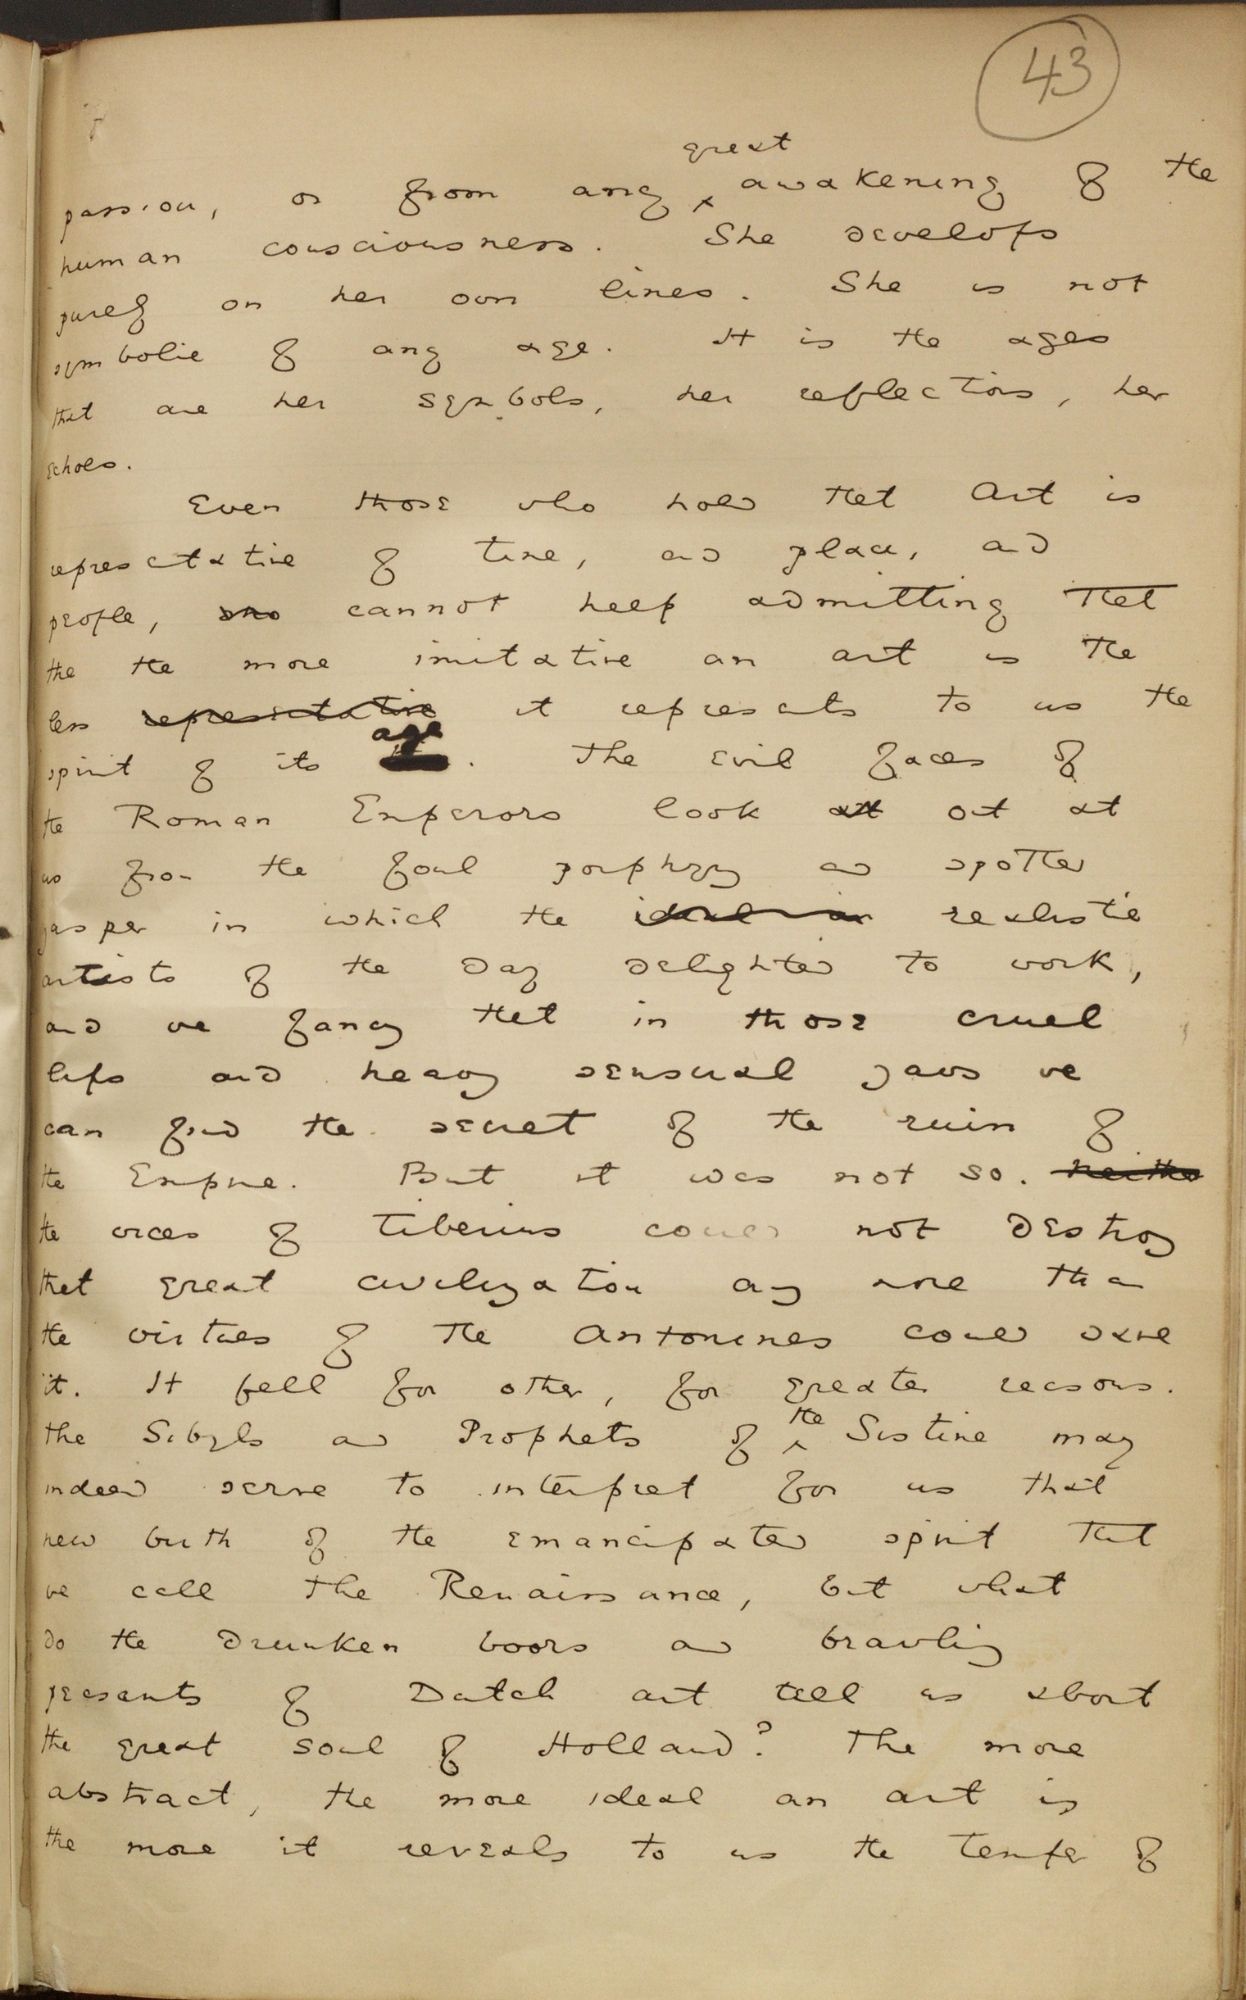 43
great
passion, or from any ‸ awakening of the
human consciousness. She develops
purely on her own lines. She is not
symbolic of any age. It is the ages
that are her symbols, her reflection, her
echoes.
Even those who hold that Art is
representative of time, and place, and
people, cannot help admitting that
the the more imitative an art is the
less representative it represents to us the
spirit of its age. The evil faces of
the Roman Emperors look at out at
us from the foul porphyry and spotted
jasper in which the realistic
artists of the day delighted to work,
and we fancy that in those cruel
lips and heavy sensual jaws we
can find the secret of the ruin of
the Empire. But it was not so. Neither
the vices of Tiberius could not destroy
that great civilization any more than
the virtues of the Antonines could save
it. It fell for other, for greater reasons.
The Sibyls and Prophets of ‸ the Sistine may
indeed serve to interpret for us that
new birth of the emancipated spirit that
we call the Renaissance, but what
do the drunken boors and brawling
peasants of Dutch art tell us about
the great soul of Holland? The more
abstract, the more ideal an art is
the more it reveals to us the temper of